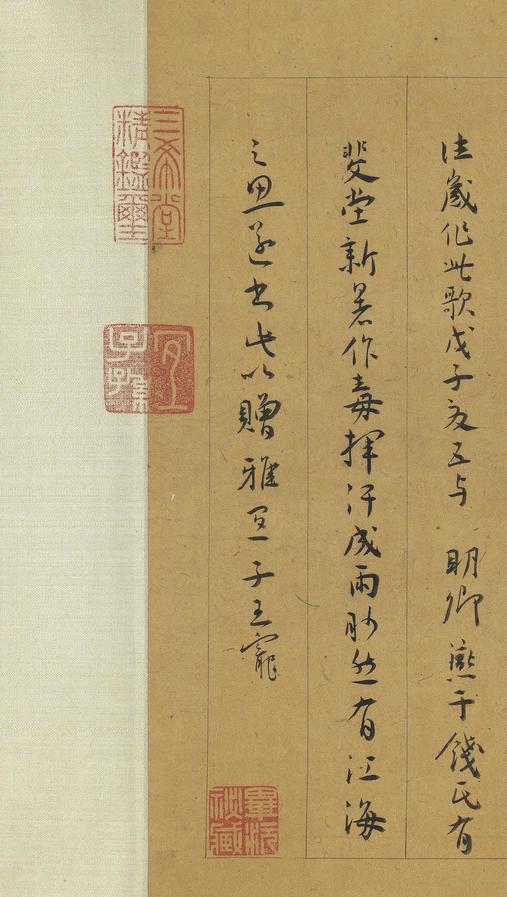 往歲作此歌戊子夏五与 明卿燕于錢氏有
斐堂新暑作毒揮汗成雨眇然有江海
之思遂書此以贈雅宜子王寵
三希堂
精鑑璽
宜子孫